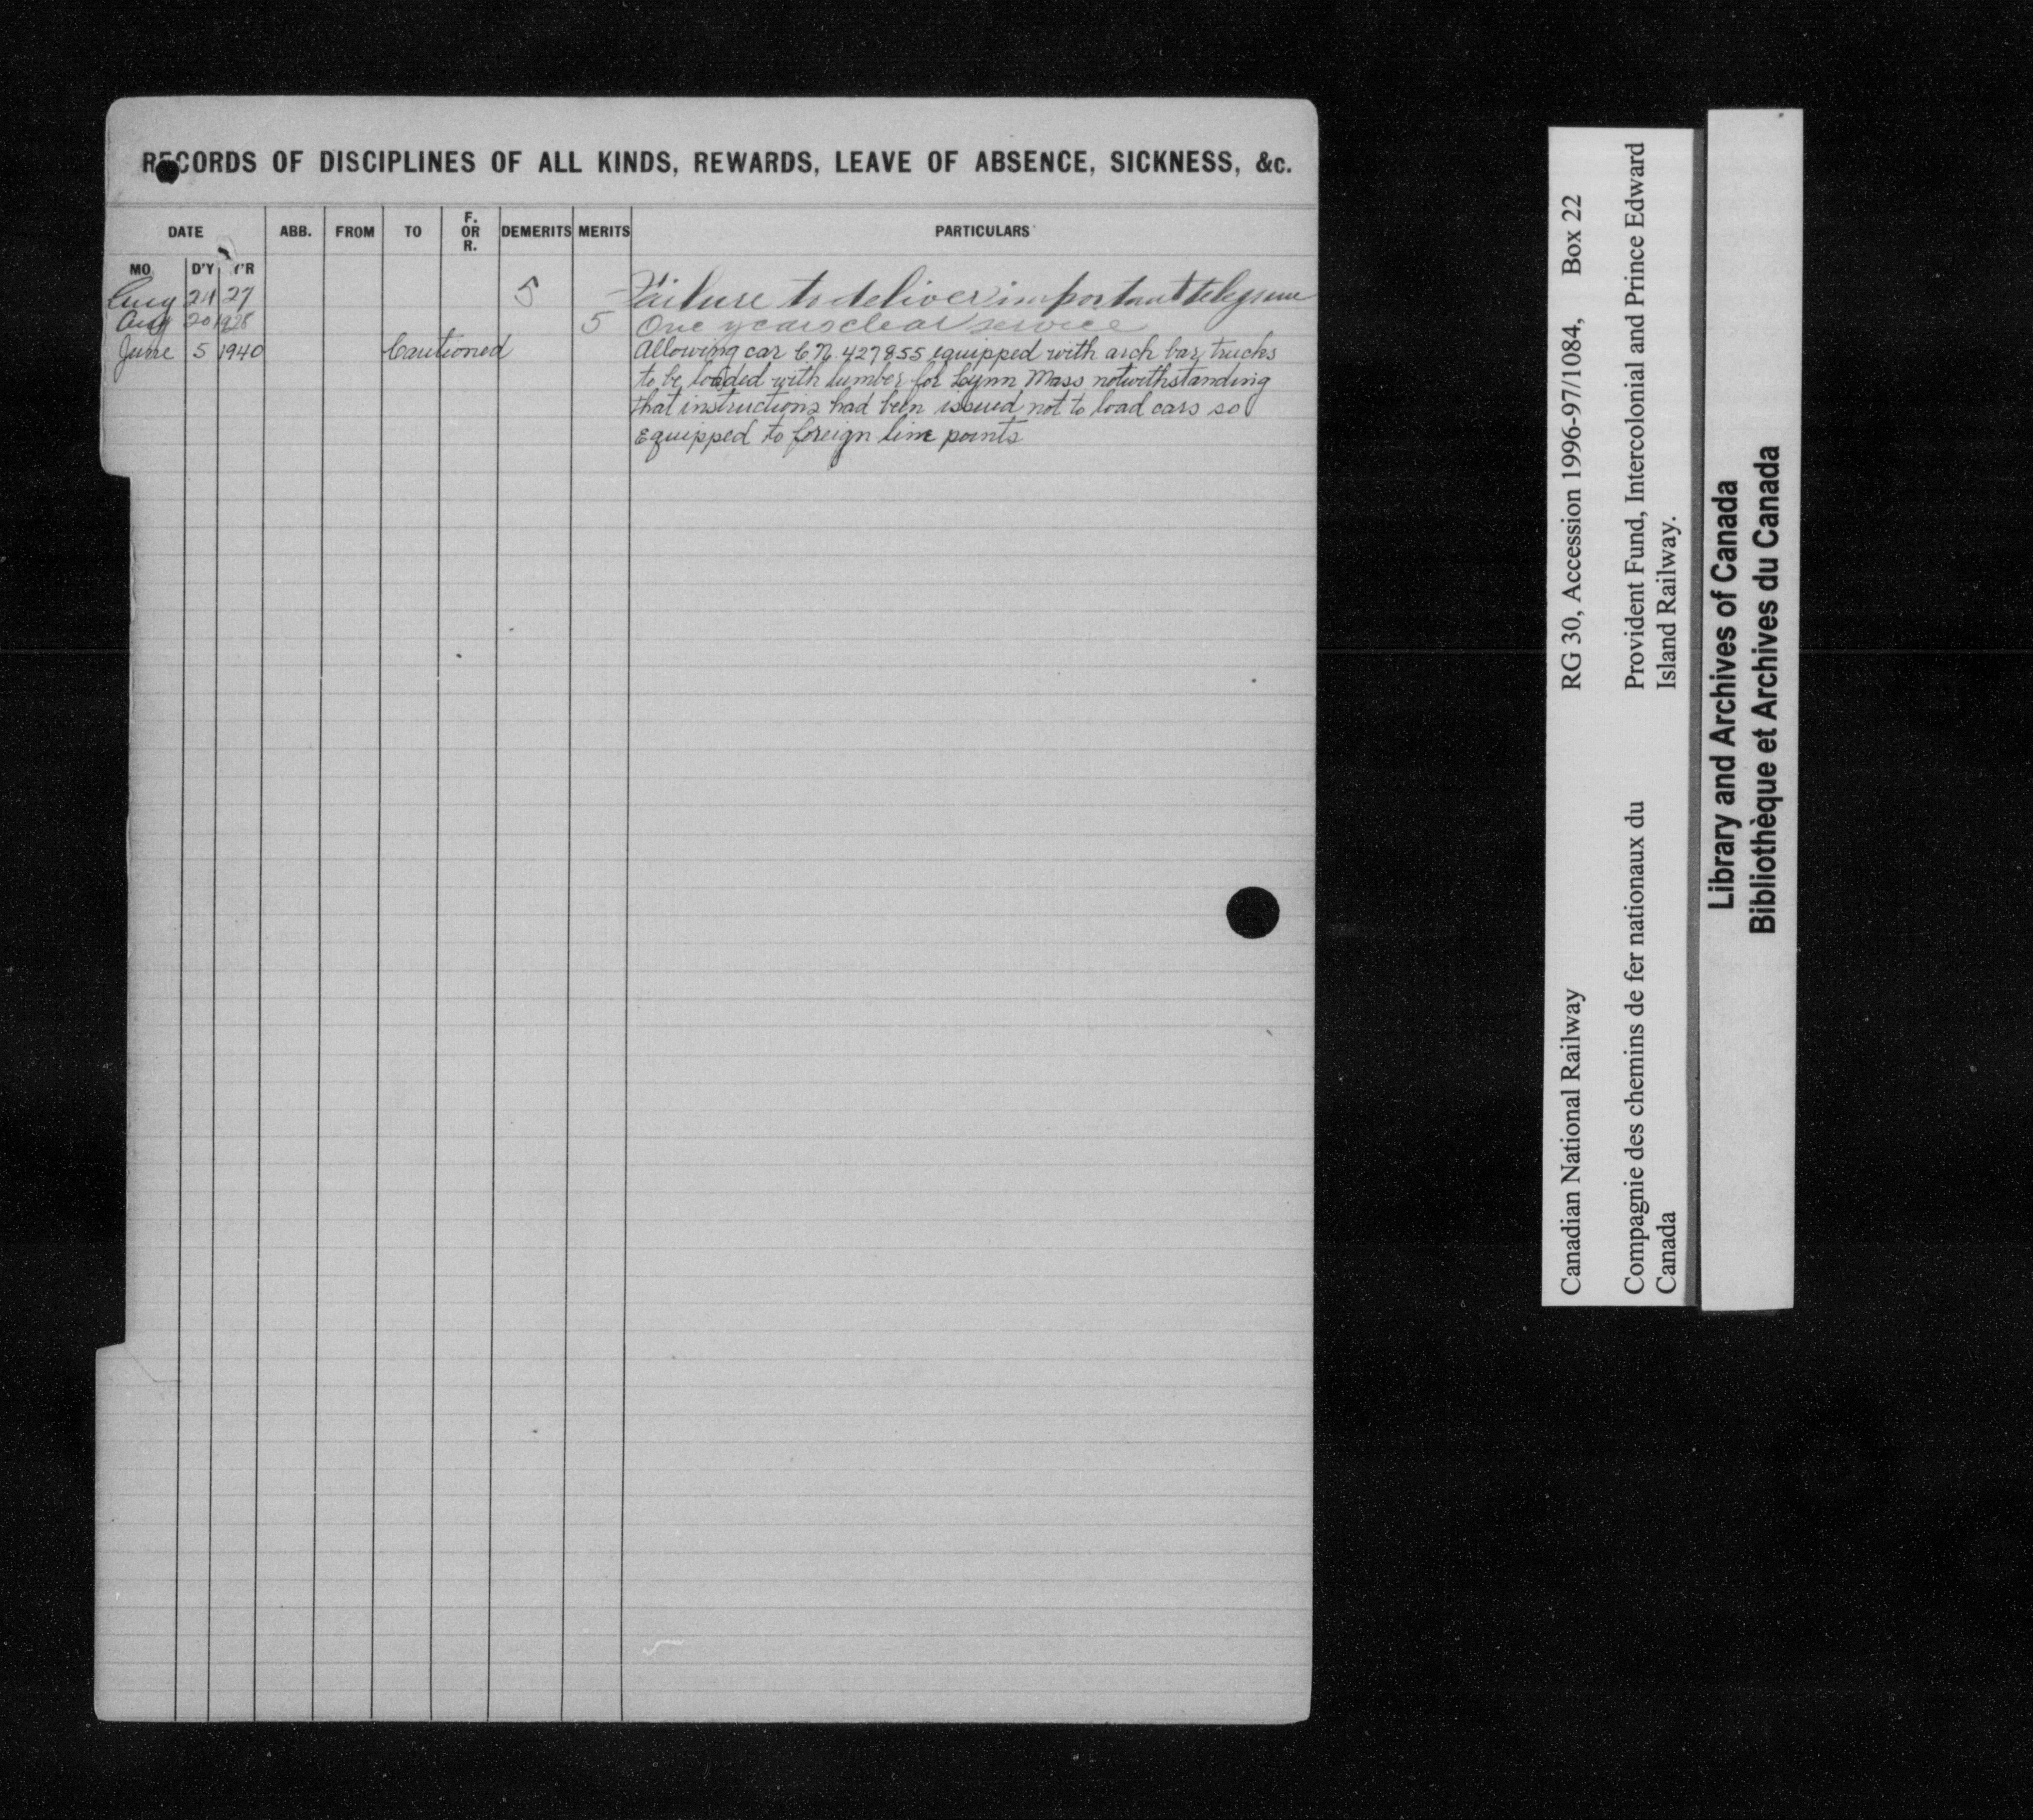 RECORDS OF DISCIPLINES OF ALL KINDS, REWARDS, LEAVE OF ABSENCE, SICKNESS, &c.
DATE ABB. FROM TO F. OR R. DEMERITS MERITS PARTICULARS
MO. D'Y Y'R
Aug 27 5 Failure to deliver important telegram
Aug 20 1928 5 One years clear service
June 5 1940 Cautioned Allowing car C.N. 427855 equipped with arch bar trucks
to be loaded with lumber for Lynn Mass notwithstanding
that instructions had been issued not to load cars so
equipped to foreign line points
Canadian National Railway RG 30, Accession 1996-97/1084, Box 22
Compagnie des chemins de fer nationaux du Provident Fund, Intercolonial and Prince Edward
Canada Island Railway.
Library and Archives of Canada
Bibliothèque et Archives du Canada